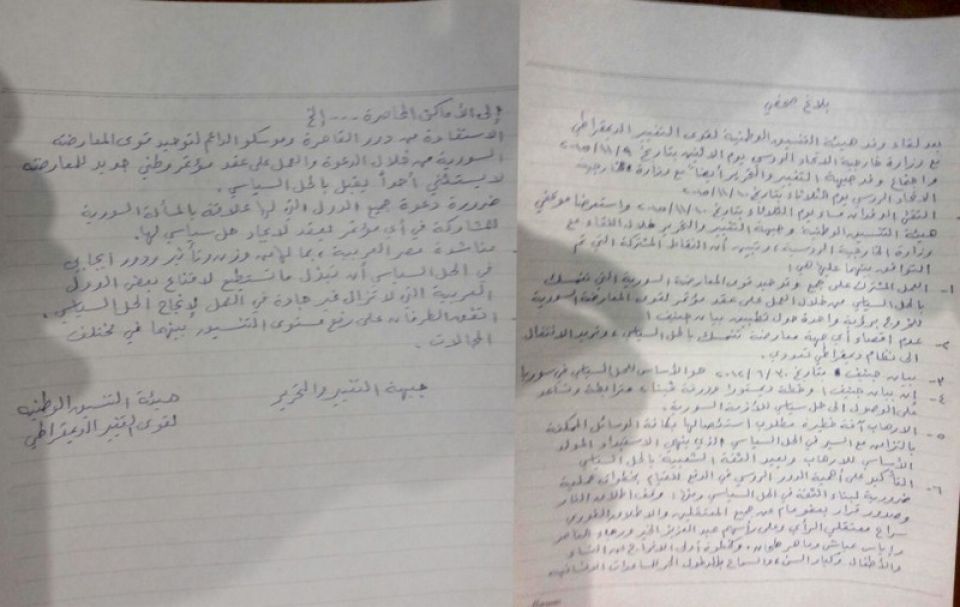 بلاغ صحفي
بعد لقاء وفد هيئة التنسيق الوطنية لقوى التغيير الديمقراطي
مع وزارة خارجية الاتحاد الروسي يوم الاثنين بتاريخ ٢٠١٥/١١/٩
واجتماع وفد جبهة التغيير والتحرير أيضاً مع وزارة خارجية
الاتحاد الروسي يوم الثلاثاء بتاريخ ٢٠١٥/١١/١٠
التقى الوفدان مساء يوم الثلاثاء بتاريخ ٢٠١٥/١١/١٠ واستعرضا موقفي
هيئة التنسيق الوطنية وجبهة التغيير والتحرير خلال اللقاء مع
وزارة الخارجية الروسية، وتبين أن النقاط المشتركة التي تم
التوافق بينهما عليها هي:
١- العمل المشترك على جمع وتوحيد قوى المعارضة السورية التي تتمسك
بالحل السياسي من خلال العمل على عقد مؤتمر لقوى المعارضة السورية
للخروج برؤية واحدة حول تطبيق بيان جنيف ١
٢- عدم اقصاء أي جهة معارضة تتمسك بالحل السياسي، وتريد الانتقال
الى نظام ديمقراطي تعددي.
٣- بيان جنيف بتاريخ ٢٠١٢/٦/٣٠ هو الأساس للحل السياسي في سوريا
٤- إن بيان جنيف ١ وخطة ديمستورا وورقة فيينا ٢ مترابطة وتساعد
على الوصول الى حل سياسي للأزمة السورية.
٥- الارهاب آفة خطيرة مطلوب استئصالها بكافة الوسائل الممكنة
بالتزامن مع السير في الحل السياسي الذي ينهي الاستبداد المولد
الأساسي للارهاب ويعيد الثقة الشعبية بالحل السياسي
٦- التأكيد على أهمية الدور الروسي في الدفع للقيام بخطوات عملية
ضرورية لبناء الثقة في الحل السياسي ومنها: وقف اطلاق النار
وصدور قرار بعفو عام عن جميع المعتقلين والاطلاق الفوري
سراح معتقلي الرأي وعلى رأسهم عبد العزيز الخير ورجاء الناصر
واياس عياش وماهر طحان. وكخطوة أولى الافراج عن النساء
والأطفال وكبار السن، والسماح بالدخول الحر للمساعدات الانسانية
إلى الأماكن المحاصرة --- الخ
الاستفادة من دور القاهرة وموسكو الداعم لتوحيد قوى المعارضة
السورية من خلال الدعوة والعمل على عقد مؤتمر وطني جديد للمعارضة
لا يستثني أحداً يقبل بالحل السياسي.
ضرورة دعوة جميع الدول التي لها علاقة بالمسألة السورية
للمشاركة في أي مؤتمر يعقد لايجاد حل سياسي لها.
مناشدة مصر العربية، بما لها من وزن وتأثير ودور ايجابي
في الحل السياسي أن تبذل ما تستطيع لاقناع بعض الدول
العربية التي لا تزال غير جادة في العمل لإنجاح الحل السياسي.
اتفق الطرفان على رفع مستوى التنسيق بينهما في مختلف
المجالات.
جبهة التغيير والتحرير
هيئة التنسيق الوطنية
لقوى التغيير الديمقراطي